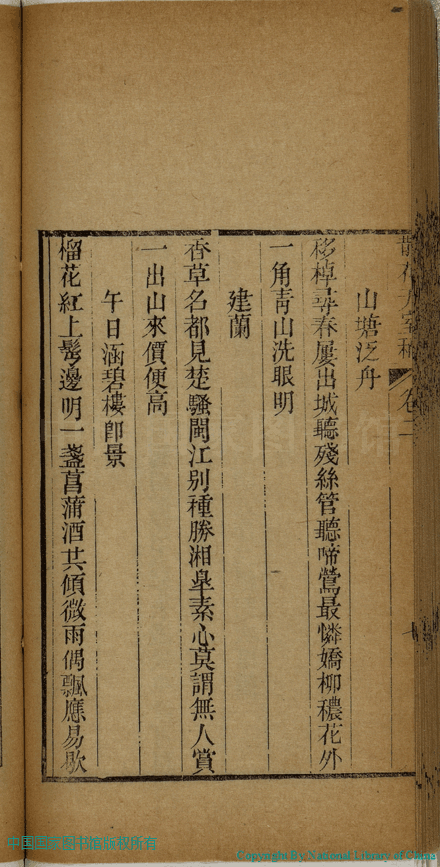 山塘泛舟
移棹尋春屢出城聽殘絲管聽啼鶯最憐嬌柳穠花外
一角靑山洗眼明
建蘭
香草名都見楚騷閩江別種勝湘皋素心莫謂無人賞
一出山來價便高
午日涵碧樓卽景
榴花紅上鬢邊明一盞菖蒲酒共傾微雨偶飄應易歇
Copyright By National Library of China